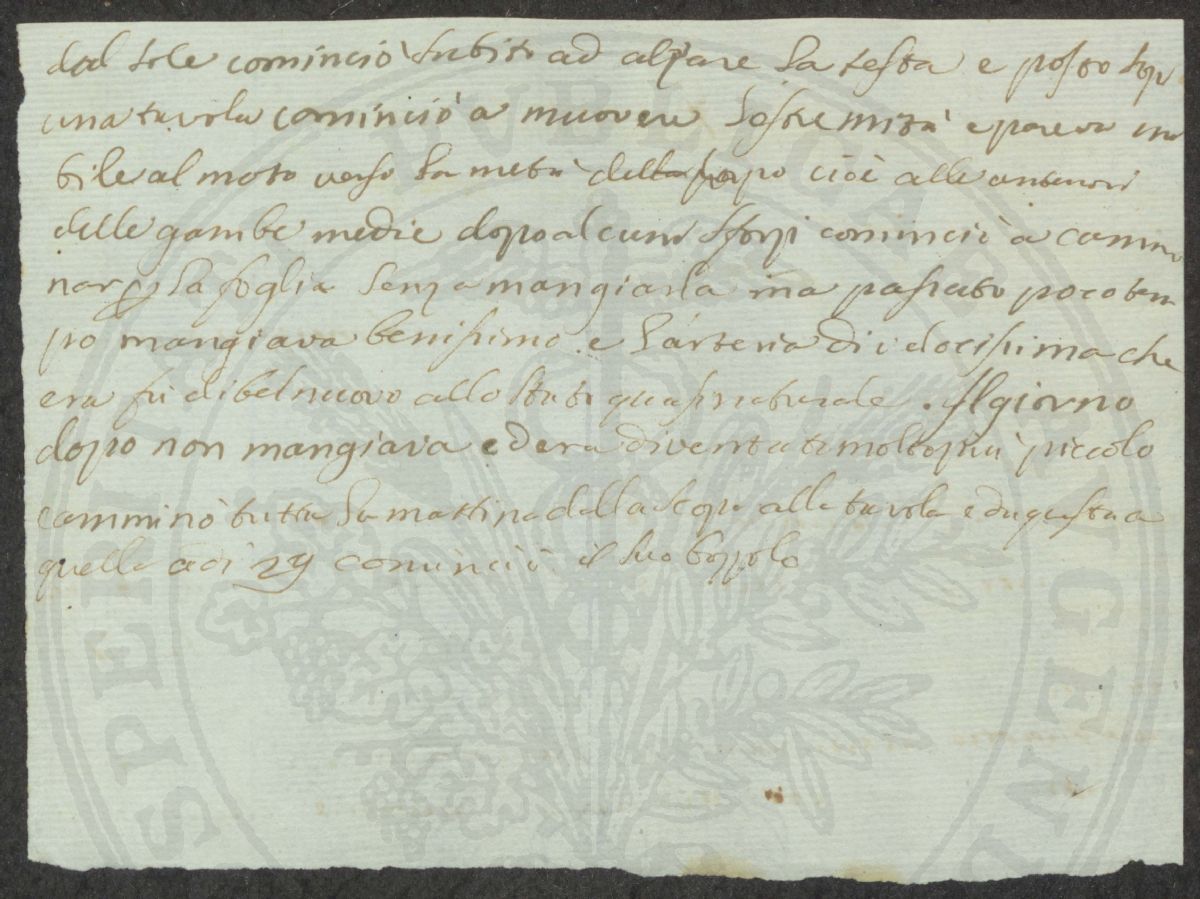 dal sole cominciò subito ad alzare la testa e posto sop
una tavola cominciò a muovere l'estremità e pareva im
bile al moto verso la metà della corpo cioè alle anteriori
delle gambe medie dopo alcuni sforzi cominciò a cammi
nar la foglia senza mangiarla ma passato poco tem
po mangiava benissimo e l'arteria di che
era fu di bel nuovo allo stato quasi naturale. Il giorno
dopo non mangiava ed era diventato molto più piccolo
camminò tutta la mattina dalla alla tavola e da questa a
quella adi 29 cominciò il suo bozzolo
PERITATI PUBLICAE AUGENDAE